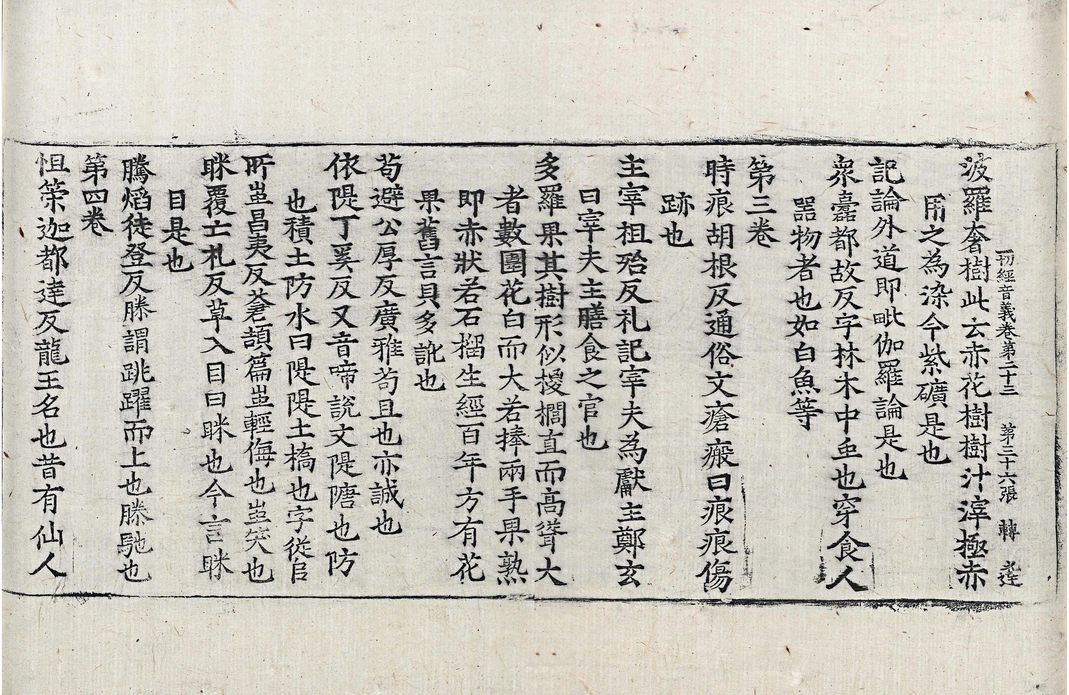 波羅奢樹此云赤花樹樹汁滓極赤
用之為染今紫礦是也
一切經音義卷第二十三 第三十六張 轉
記論外道即毗伽羅論是也
衆蠹都故反字林木中虫也穿食人
器物者也如白魚等
第三卷
時痕胡根反通俗文瘡瘢曰痕痕傷
跡也
主宰祖殆反礼記宰夫為獻主鄭玄
曰宰夫主膳食之官也
多羅果其樹形似椶櫚直而高聳大
者數圍花白而大若捧兩手果熟
即赤狀若石榴生經百年方有花
果舊言貝多訛也
苟避公厚反廣雅苟且也亦誠也
依隄丁奚反又音啼說文隄隌也防
也積土防水曰隄隄土橋也字從𨸏
所蚩昌夷反蒼頡篇蚩輕侮也蚩笑也
眯覆亡札反草入目曰眯也今言眯
目是也
騰焰徒登反騰謂跳躍而上也騰馳也
第四卷
怛策迦都達反龍王名也昔有仙人